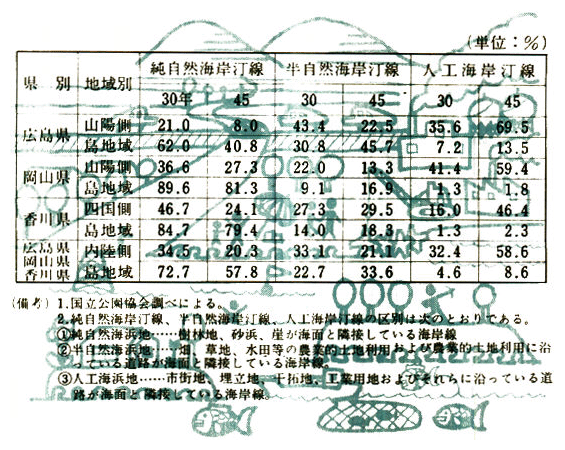 (単位：%)
県 別 地域別 純自然海岸汀線 半自然海岸汀線 人工海岸汀線
30年 45 30 45 30 45
広島県 山陽側 21.0 8.0 43.4 22.5 35.6 69.5
島地域 62.0 40.8 30.8 45.7 7.2 13.5
岡山県 山陽側 36.6 27.3 22.0 13.3 41.4 59.4
島地域 89.6 81.3 9.1 16.9 1.3 1.8
香川県 四国側 46.7 24.1 27.3 29.5 16.0 46.4
島地域 84.7 79.4 14.0 18.3 1.3 2.3
広島県 岡山県 香川県 内陸側 34.5 20.3 33.1 21.1 32.4 58.6
島地域 72.7 57.8 22.7 33.6 4.6 8.6
(備考) 1.国立公園協会調べによる。
2.純自然海岸汀線、半自然海岸汀線、人工海岸汀線の区別は次のとおりである。
①純自然海浜地……樹林地、砂浜、崖が海面と隣接している海岸線
②半自然海浜地……畑、草地、水田等の農業的土地利用および農業的土地利用に沿
っている道路が海面と隣接している海岸線。
③人工海浜地……市街地、埋立地、干拓地、工業用地およびそれらに沿っている道
路が海面と隣接している海岸線。